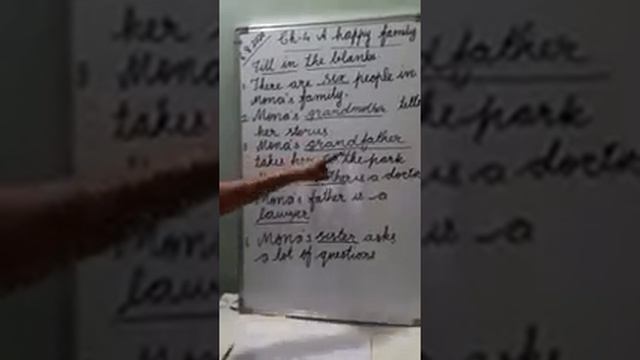 Ch-4 A happy family
Fill in the blanks.
1. There are six people in
Mona's family.
2. Mona's grandmother tells
her stories
3. Mona's grandfather
takes her to the park
is a doctor
Mona's father is a
lawyer
Mona's sister asks
a lot of questions